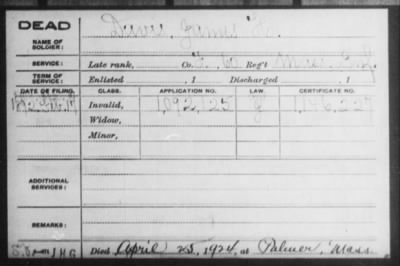 DEAD
NAME OF SOLDIER:
Davis, James
SERVICE:
Late rank, Co. Reg't Mass. Inf.
TERM OF SERVICE:
Enlisted , 1 Discharged , 1
DATE OF FILING. CLASS. APPLICATION NO. LAW. CERTIFICATE NO.
Invalid, 1,092,125 1,146,227
Widow,
Minor,
ADDITIONAL SERVICES:
REMARKS:
Died April 25, 1924, at Palmer, Mass.